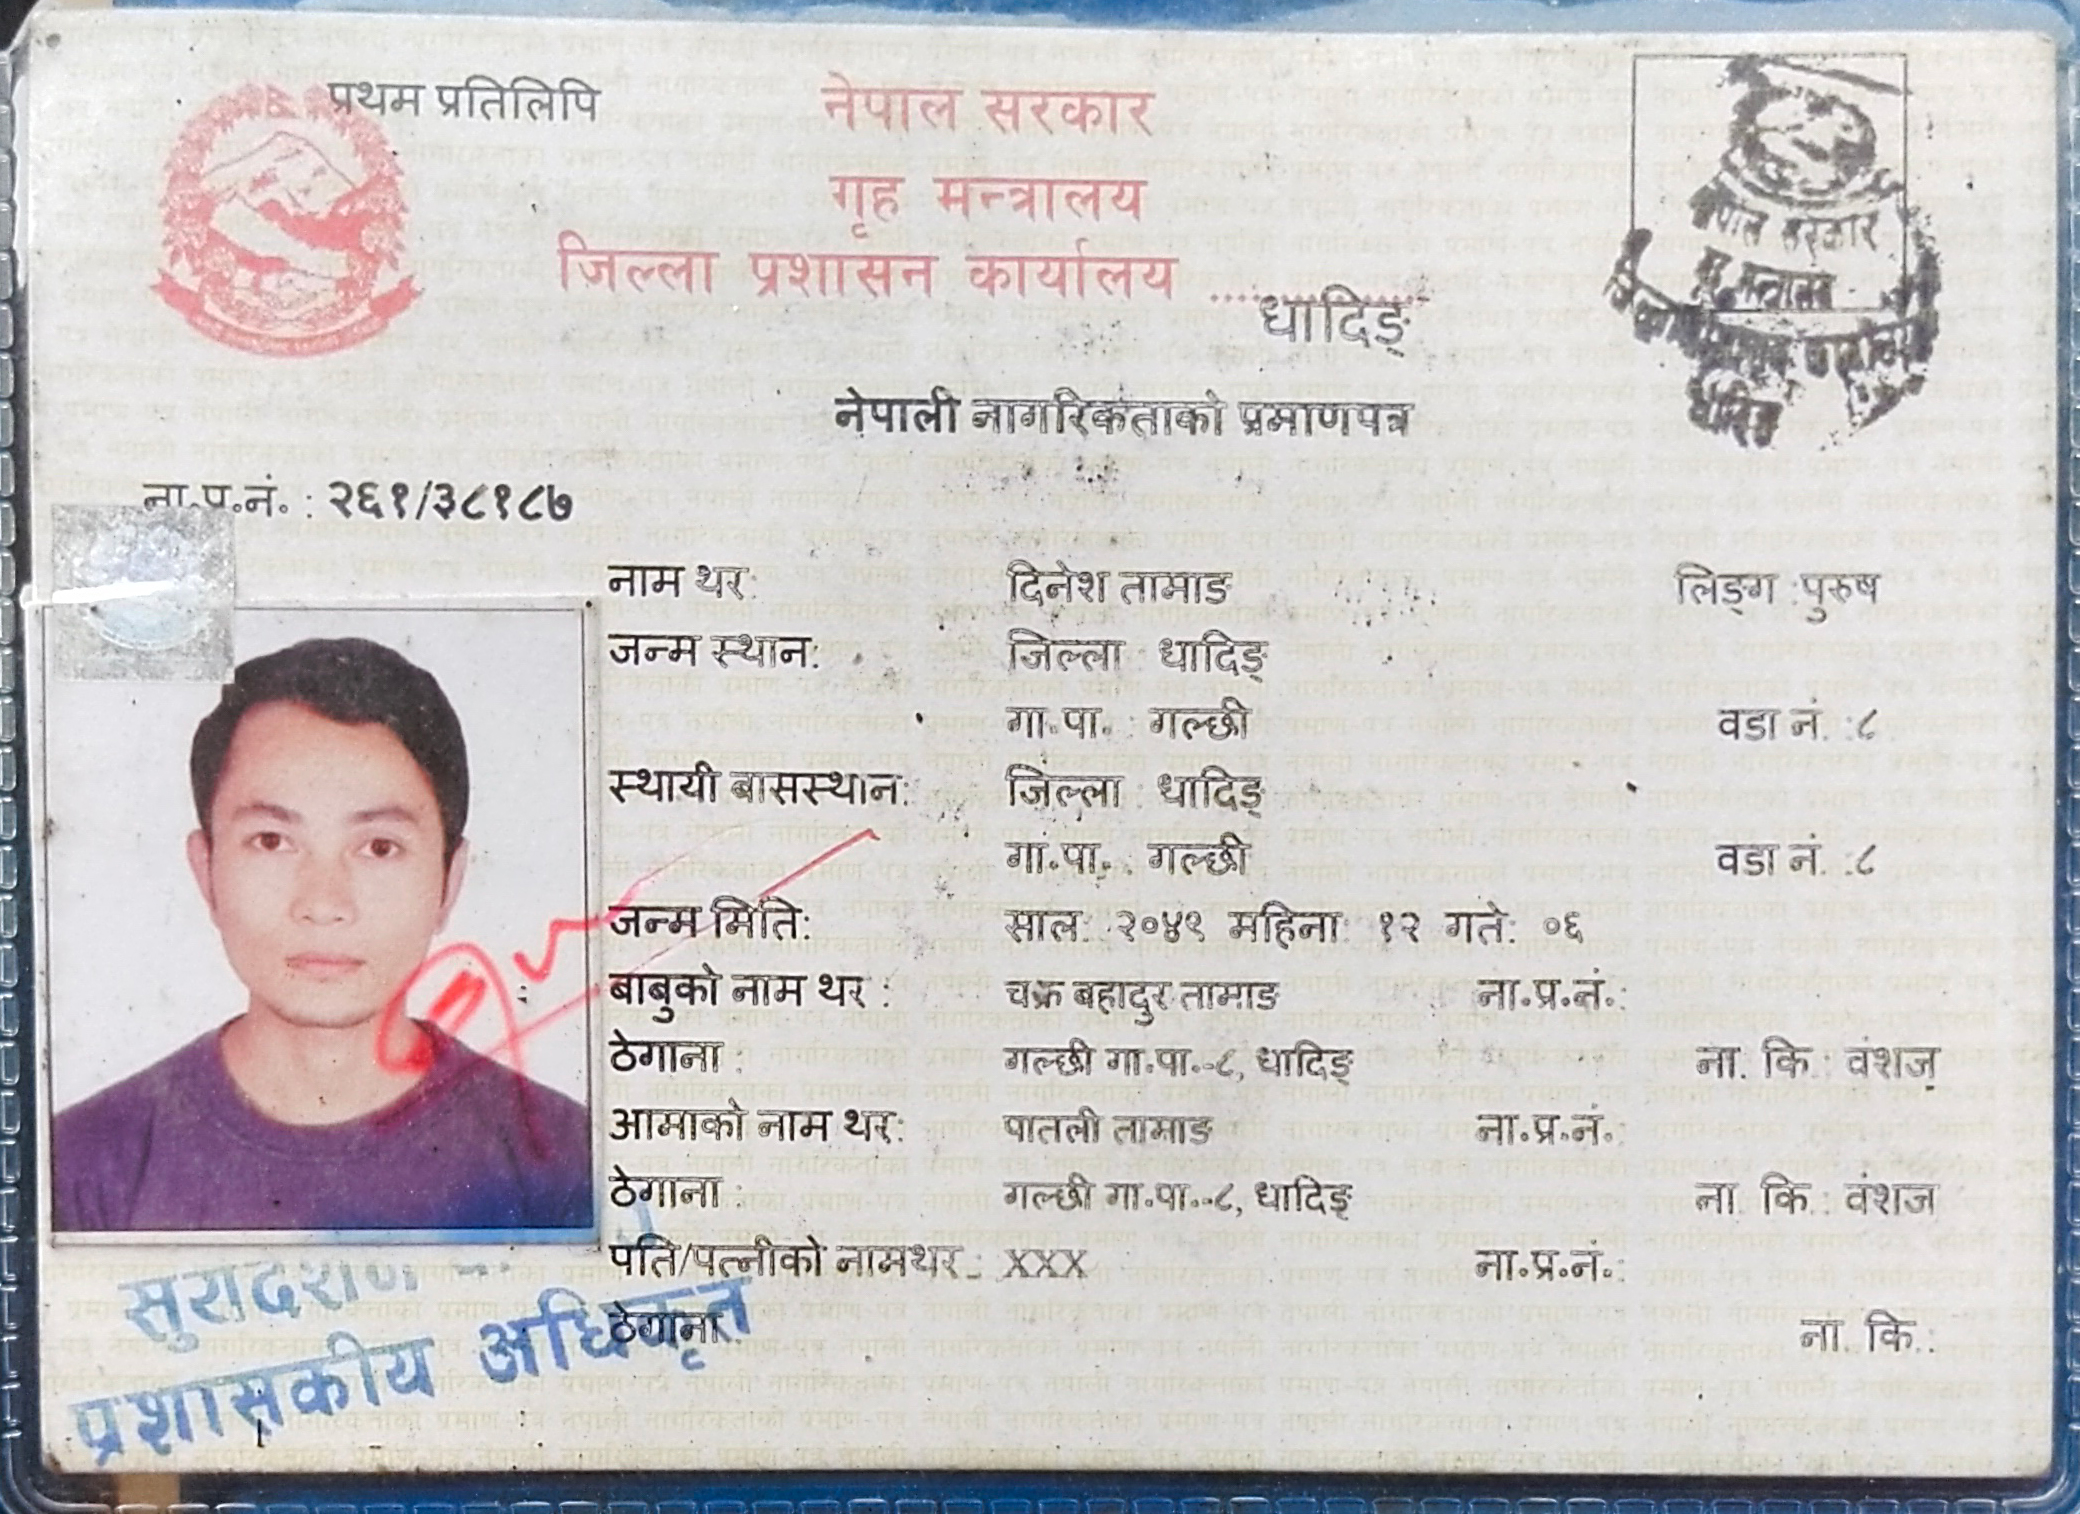 प्रथम प्रतिलिपि
नेपाल सरकार
गृह मन्त्रालय
जिल्ला प्रशासन कार्यालय ..............
धादिङ्
नेपाल सरकार
गृह मन्त्रालय
जिल्ला प्रशासन कार्यालय
धादिङ
नेपाली नागरिकताको प्रमाणपत्र
ना.प्र.नं. : २६१/३८१८७
नाम थर: दिनेश तामाङ लिङ्ग :पुरुष
जन्म स्थान: जिल्ला : धादिङ्
गा.पा. : गल्छी वडा नं. :८
स्थायी बासस्थान: जिल्ला : धादिङ्
गा.पा. : गल्छी वडा नं. :८
जन्म मिति: साल: २०४९ महिना: १२ गते: ०६
बाबुको नाम थर : चक्र बहादुर तामाङ ना.प्र.नं.:
ठेगाना : गल्छी गा.पा.-८, धादिङ् ना. कि.: वंशज
आमाको नाम थर: पातली तामाङ ना.प्र.नं.:
ठेगाना : गल्छी गा.पा.-८, धादिङ् ना. कि.: वंशज
पति/पत्नीको नामथर : XXX ना.प्र.नं.:
ठेगाना : ना. कि.:
प्रशासकीय अधिकृत